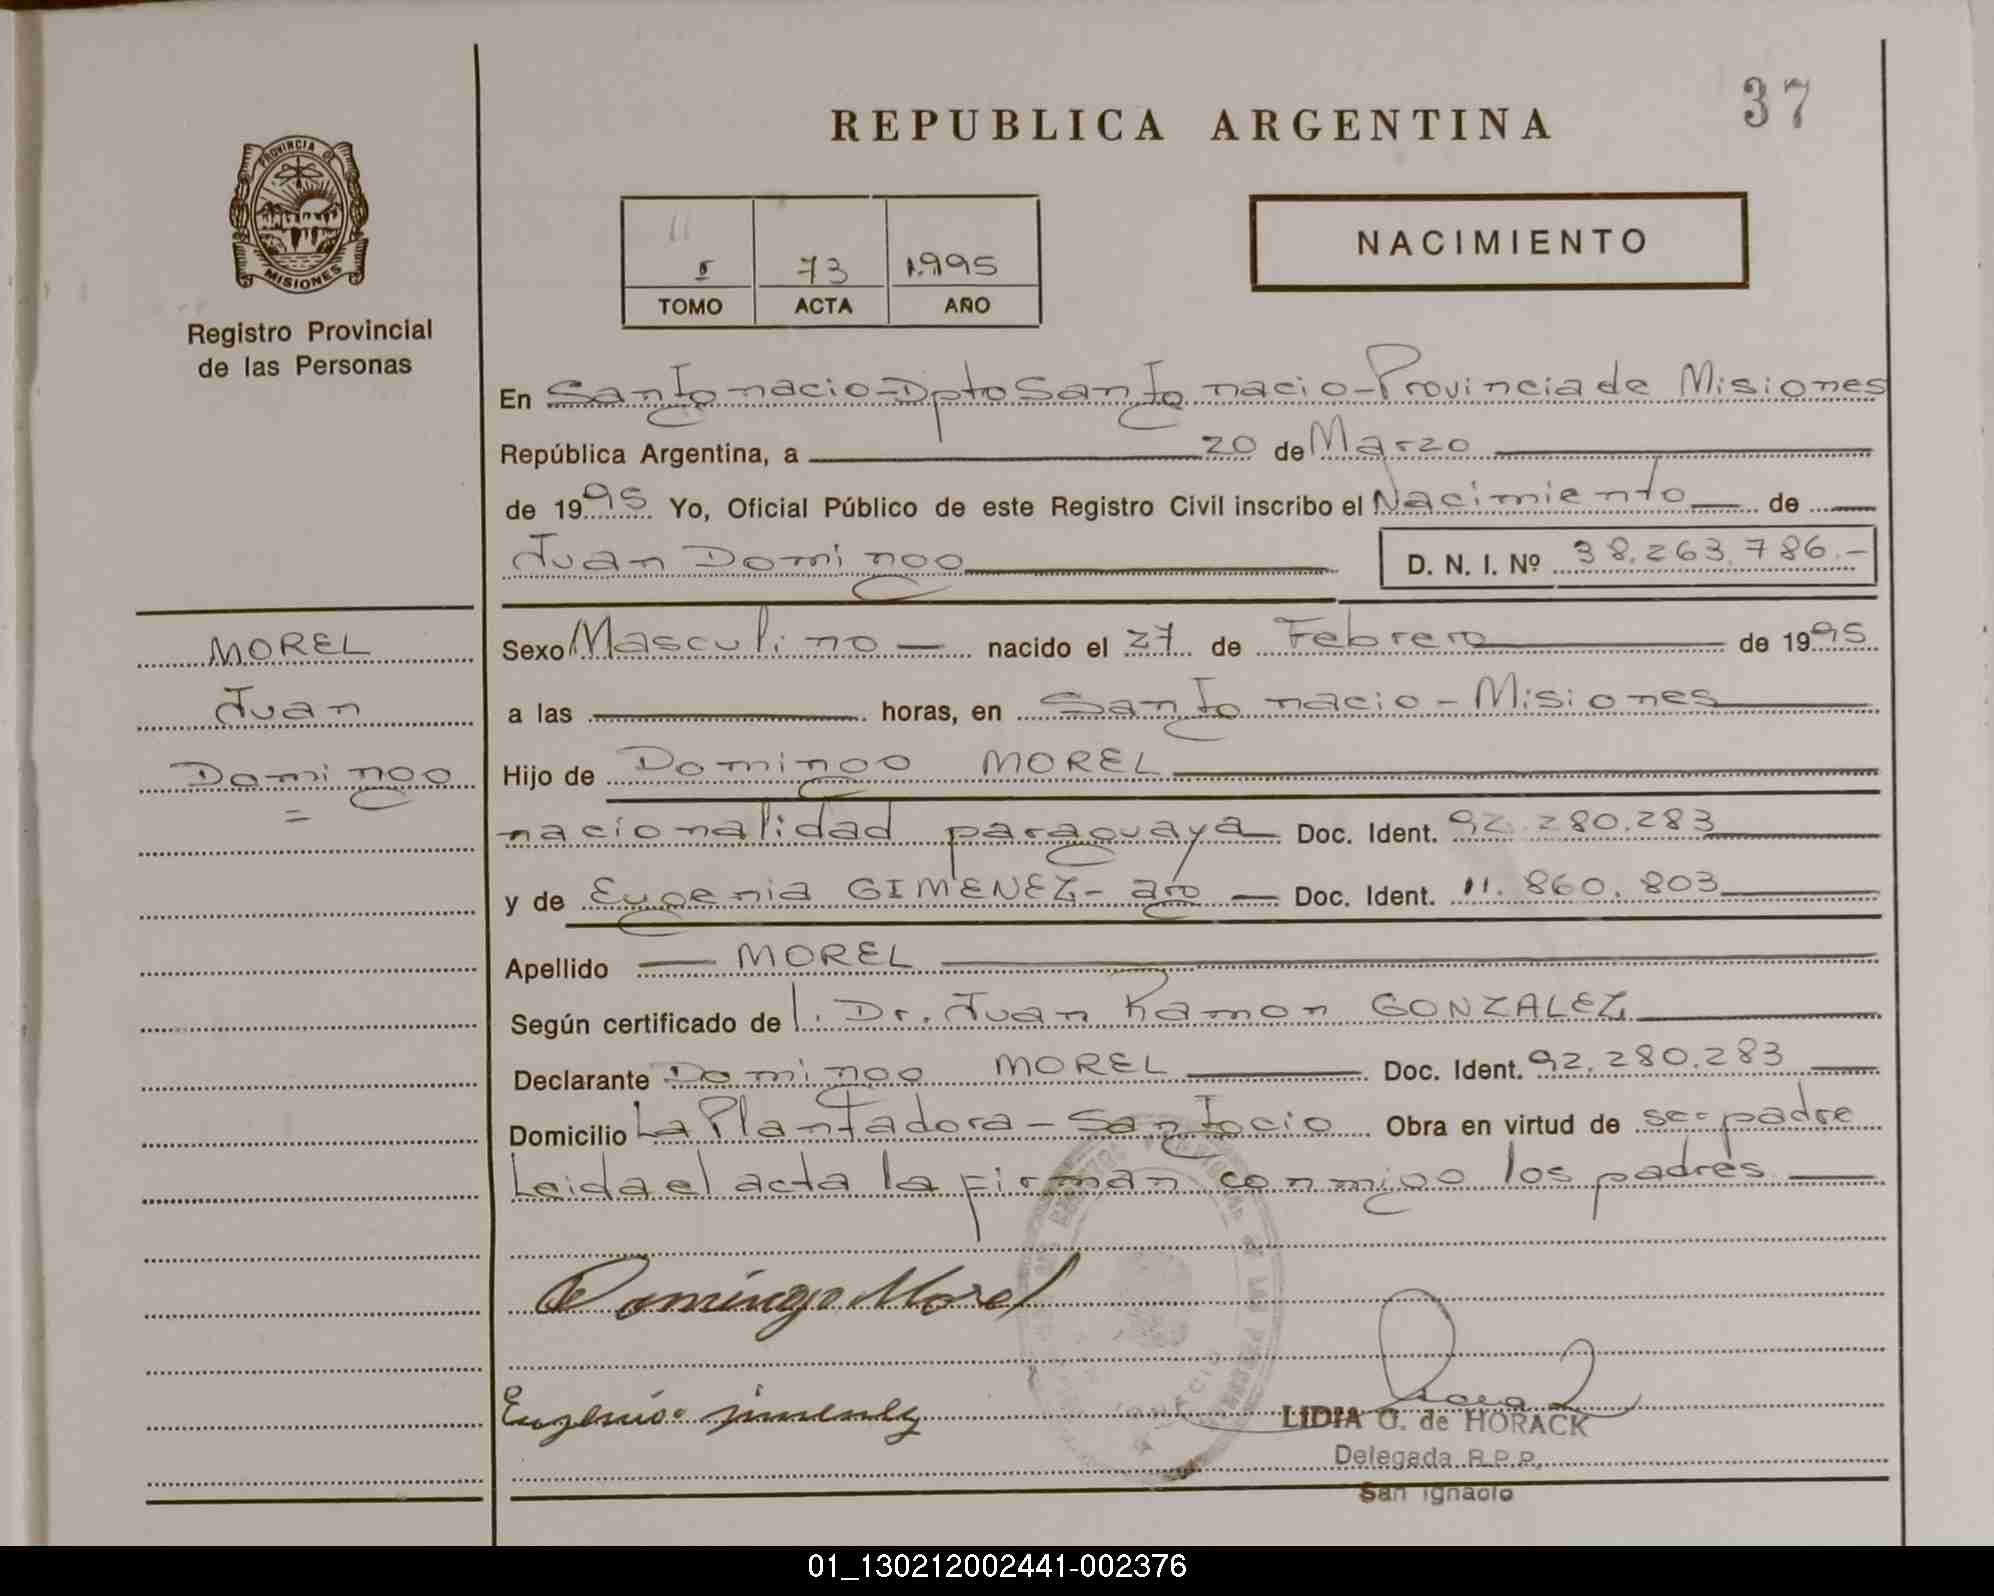 37
REPUBLICA ARGENTINA
PROVINCIA DE
MISIONES
Registro Provincial
de las Personas
NACIMIENTO
II
I 73 1.995
TOMO ACTA AÑO
En San Ignacio-Dpto San Ignacio-Provincia de Misiones
República Argentina, a 20 de Marzo
de 1995 Yo, Oficial Público de este Registro Civil inscribo el Nacimiento de
Juan Domingo D. N. I. Nº 38.263.786.-
MOREL
Juan
Domingo
=
Sexo Masculino nacido el 27 de Febrero de 1995
a las horas, en San Ignacio - Misiones
Hijo de Domingo MOREL
nacionalidad paraguaya Doc. Ident. 92.280.283
y de Eugenia GIMENEZ- arg Doc. Ident. 11.860.803
Apellido MOREL
Según certificado del. Dr. Juan Ramon GONZALEZ
Declarante Domingo MOREL Doc. Ident. 92.280.283
Domicilio La Plantadora - San Igcio Obra en virtud de ser padre
Leida el acta la firman conmigo los padres
Domingo Morel
Eugenia jimenez
LIDIA G. de HORACK
Delegada R.P.P.
San Ignacio
01_130212002441-002376